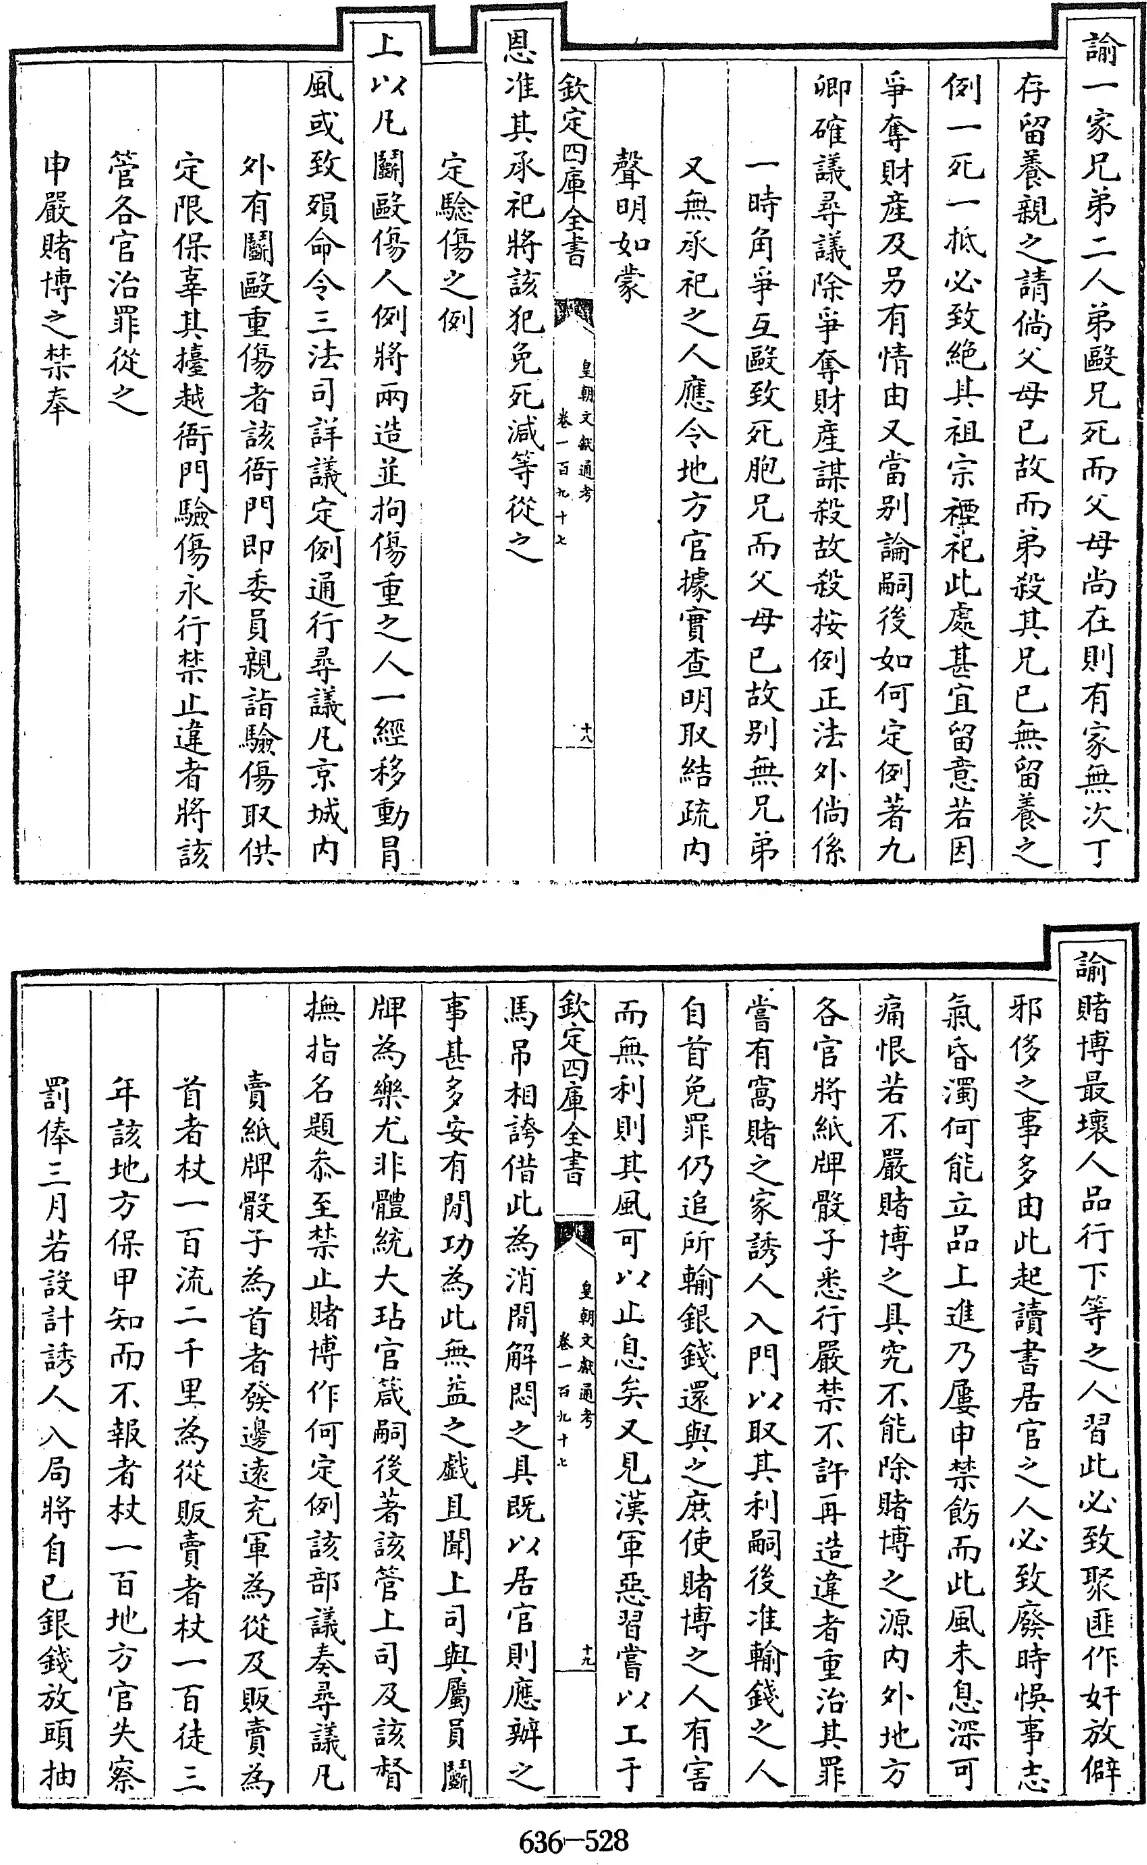 諭一家兄弟二人弟毆兄死而父母尚在則有家無次丁
存留養親之請倘父母已故而弟殺其兄已無留養之
例一死一抵必致絶其祖宗禋祀此處甚宜留意若因
爭奪財産及另有情由又當别論嗣後如何定例著九
卿確議尋議除爭奪財産謀殺故殺按例正法外倘係
一時角爭互毆致死胞兄而父母已故别無兄弟
又無承祀之人應令地方官據實查明取結疏内
聲明如蒙
欽定四庫全書
皇朝文獻通考
卷一百九十七
十八
恩准其承祀將該犯免死減等從之
定驗傷之例
上以凡鬬毆傷人例將兩造並拘傷重之人一經移動冒
風或致殞命令三法司詳議定例通行尋議凡京城内
外有鬬毆重傷者該衙門即委員親詣驗傷取供
定限保辜其擡越衙門驗傷永行禁止違者將該
管各官治罪從之
申嚴賭博之禁奉
諭賭博最壞人品行下等之人習此必致聚匪作奸放僻
邪侈之事多由此起讀書居官之人必致廢時悞事志
氣昏濁何能立品上進乃屢申禁飭而此風未息深可
痛恨若不嚴賭博之具究不能除賭博之源内外地方
各官將紙牌骰子悉行嚴禁不許再造違者重治其罪
嘗有窩賭之家誘人入門以取其利嗣後准輸錢之人
自首免罪仍追所輸銀錢還與之庶使賭博之人有害
而無利則其風可以止息矣又見漢軍惡習嘗以工于
欽定四庫全書
皇朝文獻通考
卷一百九十七
十九
馬吊相誇借此為消閒解悶之具既以居官則應辦之
事甚多安有閒功為此無益之戲且聞上司與屬員鬬
牌為樂尤非體統大玷官箴嗣後著該管上司及該督
撫指名題叅至禁止賭博作何定例該部議奏尋議凡
賣紙牌骰子為首者發邊遠充軍為從及販賣為
首者杖一百流二千里為從販賣者杖一百徒三
年該地方保甲知而不報者杖一百地方官失察
罰俸三月若設計誘人入局將自已銀錢放頭抽
636-528